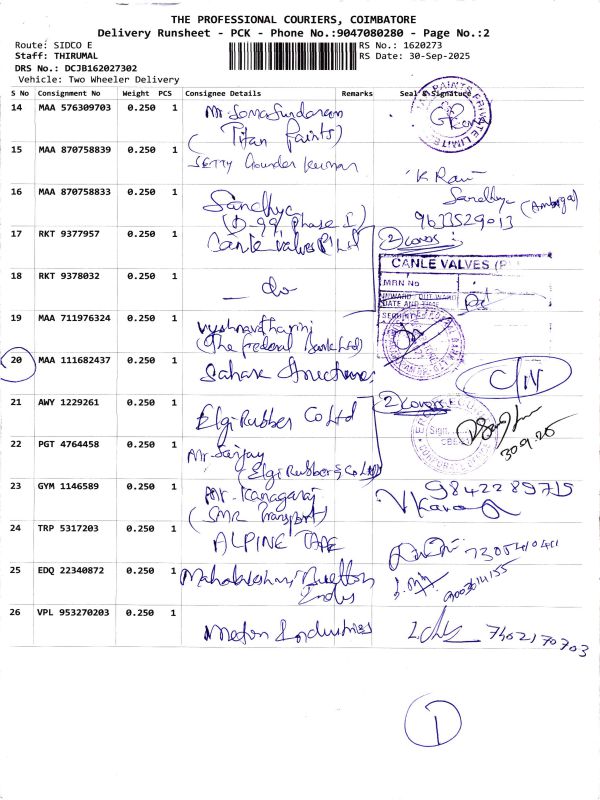 THE PROFESSIONAL COURIERS, COIMBATORE
Delivery Runsheet - PCK - Phone No.:9047080280 - Page No.:2
Route: SIDCO E
Staff: THIRUMAL
DRS No.: DCJB162027302
Vehicle: Two Wheeler Delivery
RS No.: 1620273
RS Date: 30-Sep-2025
S No Consignment No Weight PCS Consignee Details Remarks Seal & Signature
14 MAA 576309703 0.250 1 Mr. Somasundaram
(Titan Paints)
15 MAA 870758839 0.250 1 SETTY Gounder Kumar
16 MAA 870758833 0.250 1 Sandhya
(D-99, Phase I)
K Ravi
Sandhya
9633529013
17 RKT 9377957 0.250 1 Canle Valves P Ltd
2 Covers
CANLE VALVES (P
MRN No
INWARD OUTWARD
DATE AND TIME
18 RKT 9378032 0.250 1 — do
19 MAA 711976324 0.250 1
(The Federal Bank Ltd)
20 MAA 111682437 0.250 1 Sahara Structures
C/N
21 AWY 1229261 0.250 1 Elgi Rubber Co Ltd
2 Covers
30.9.25
22 PGT 4764458 0.250 1 Mr. Sanjay
(Elgi Rubber Co Ltd)
23 GYM 1146589 0.250 1 Mr. Kanagaraj
(SMR Transport)
9842289715
24 TRP 5317203 0.250 1 ALPINE TAPE
25 EDQ 22340872 0.250 1 Mahalakshmi
Inds
26 VPL 953270203 0.250 1 Industries
7402170703
1